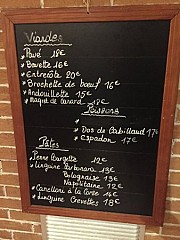 Viandes
Pavé 18€
Bavette 16€
Entrecôte 20€
Brochette de bœuf 16€
Andouillette 15€
Magret de canard 18€
Poissons
Dos de Cabillaud 17€
Espadon 17€
Pâtes
Penne Courgette 12€
Linguine Carbonara 13€
Bolognaise 13€
Napolitaine 12€
Canelloni à la Corte 14€
Linguine Crevettes 18€